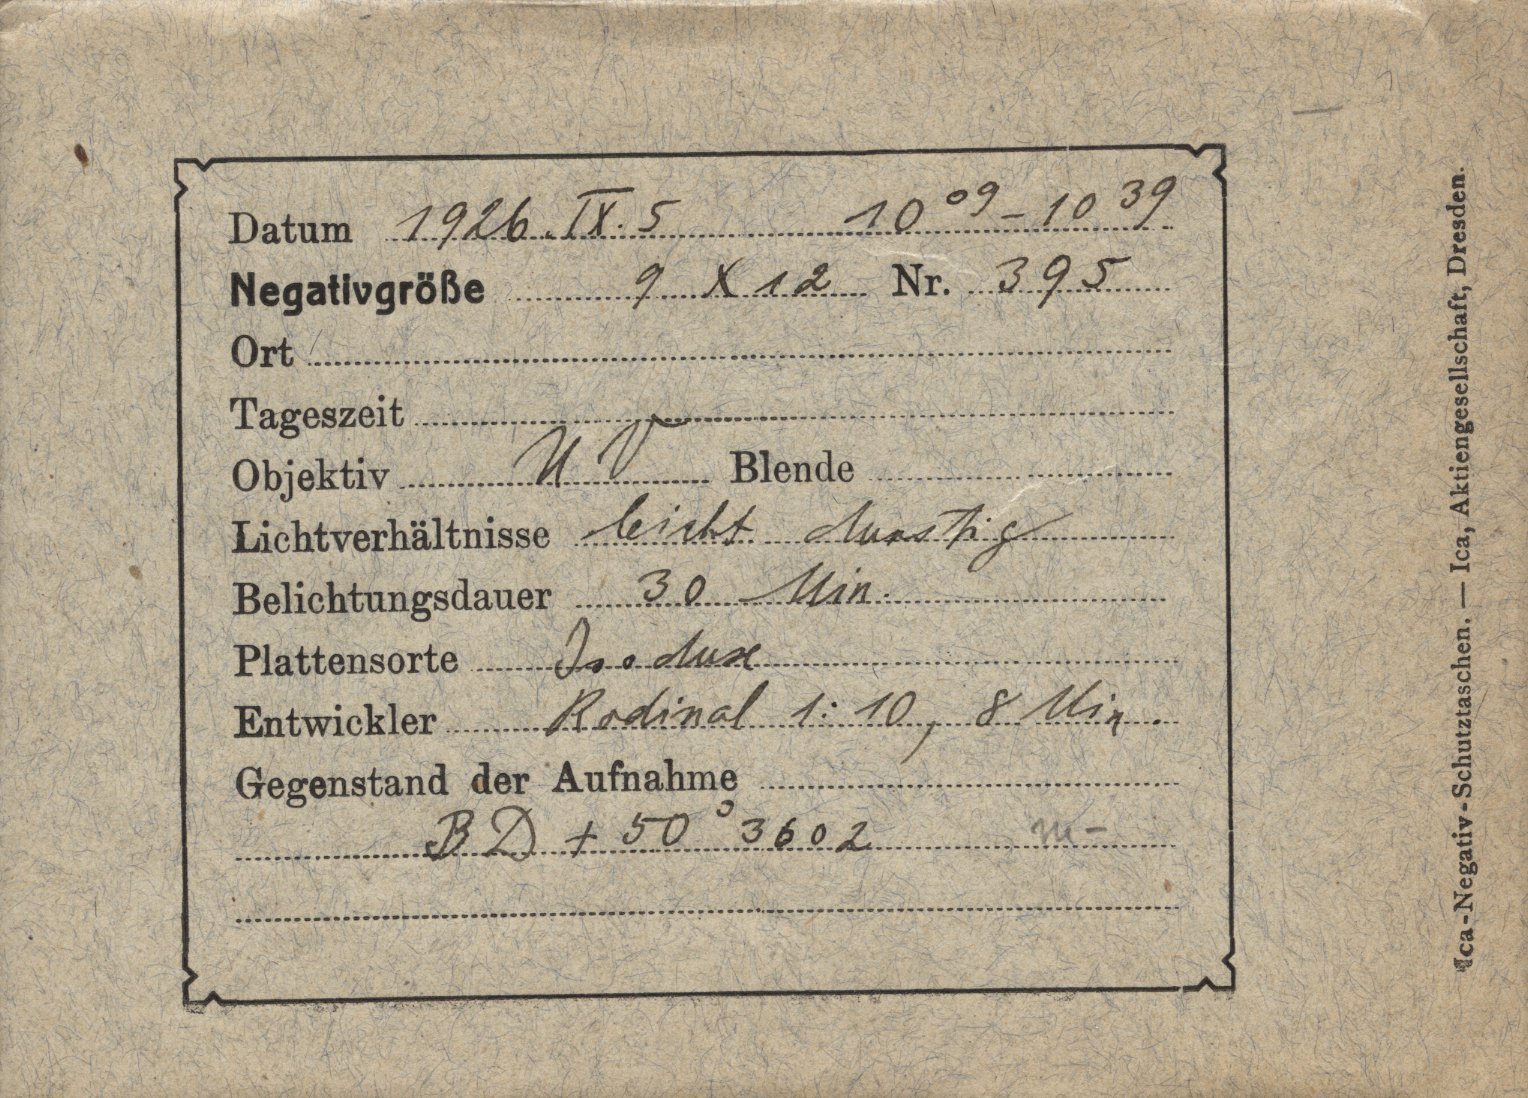 Datum 1926.IX.5 10 09 – 10 39
Negativgröße 9 X 12 Nr. 395
Ort
Tageszeit
Objektiv U V Blende
Lichtverhältnisse leicht dunstig
Belichtungsdauer 30 Min.
Plattensorte Isodux
Entwickler Rodinal 1:10, 8 Min.
Gegenstand der Aufnahme
BD + 50° 3602 m-
Ica-Negativ-Schutztaschen. — Ica, Aktiengesellschaft, Dresden.